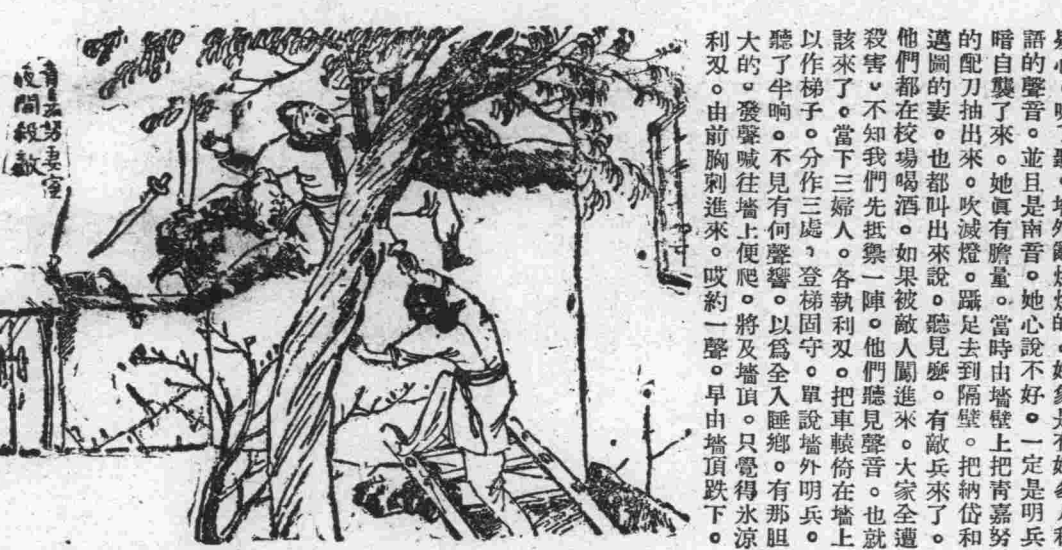 語的聲音。並且是南音。她心說不好。一定是明兵
暗自襲了來。她眞有膽量。當時由墻壁上把靑嘉努
的配刀抽出來。吹滅燈。躡足去到隔壁。把納岱和
邁圖的妻。也都叫出來說。聽見麽。有敵兵來了。
他們都在校場喝酒。如果被敵人闖進來。大家全遭
殺害。不知我們先抵禦一陣。他們聽見聲音。也就
該來了。當下三婦人。各執利刄。把車轅倚在墻上
以作梯子。分作三處，登梯固守。單說墻外明兵。
聽了半晌。不見有何聲響。以爲全入睡鄕。有那胆
大的。發聲喊往墻上便爬。將及墻頂。只覺得氷涼
利刄。由前胸刺進來。哎約一聲。早由墻頂跌下。
青嘉努妻
夜間殺敵